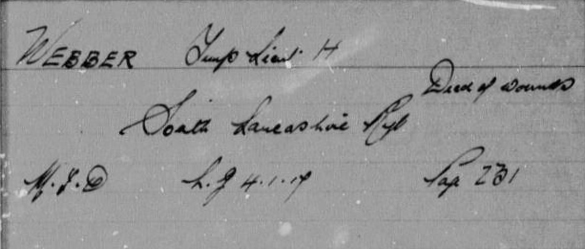 WEBBER Temp Lieut H
Died of wounds
South Lancashire Regt
M.I.D L.G 4.1.17 Pap 231